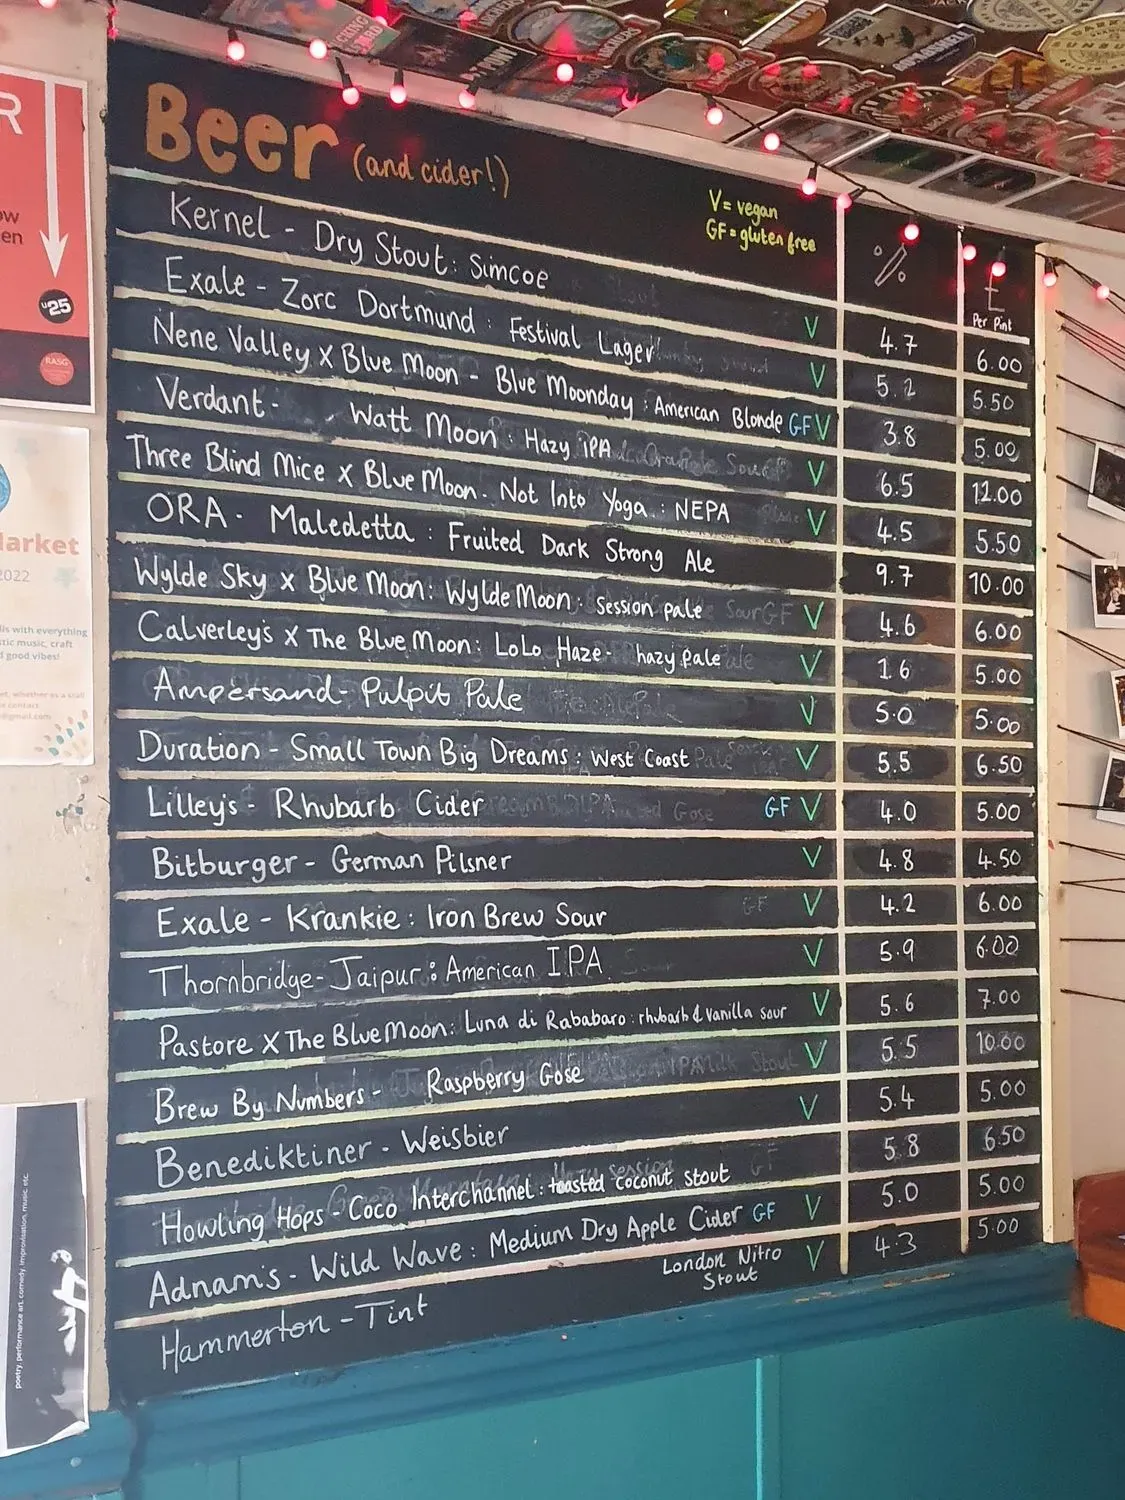 Beer (and cider!)
V = vegan
GF = gluten free
%
£
Per Pint
Kernel - Dry Stout: Simcoe V 4.7 6.00
Exale - Zorc Dortmund : Festival Lager V 5.2 5.50
Nene Valley X Blue Moon - Blue Moonday : American Blonde GF V 3.8 5.00
Verdant - Watt Moon : Hazy IPA V 6.5 12.00
Three Blind Mice x Blue Moon - Not Into Yoga : NEPA V 4.5 5.50
ORA - Maledetta : Fruited Dark Strong Ale 9.7 10.00
Wylde Sky x Blue Moon: Wylde Moon: session pale V 4.6 6.00
Calverley's X The Blue Moon: LoLo Haze - hazy pale V 1.6 5.00
Ampersand - Pulpit Pale V 5.0 5.00
Duration - Small Town Big Dreams : West Coast V 5.5 6.50
Lilley's - Rhubarb Cider GF V 4.0 5.00
Bitburger - German Pilsner V 4.8 4.50
Exale - Krankie : Iron Brew Sour V 4.2 6.00
Thornbridge - Jaipur : American IPA V 5.9 6.00
Pastore X The Blue Moon: Luna di Rababaro : rhubarb & vanilla sour V 5.6 7.00
Brew By Numbers - Raspberry Gose V 5.5 10.00
Benediktiner - Weisbier V 5.4 5.00
Howling Hops - Coco Interchannel : toasted coconut stout 5.8 6.50
Adnam's - Wild Wave : Medium Dry Apple Cider GF V 5.0 5.00
Hammerton - Tint London Nitro Stout V 4.3 5.00
R
U25
RASG
Market
2022
with everything
music, craft
good vibes!
contact
@gmail.com
poetry, performance art, comedy, improvisation, music, etc.